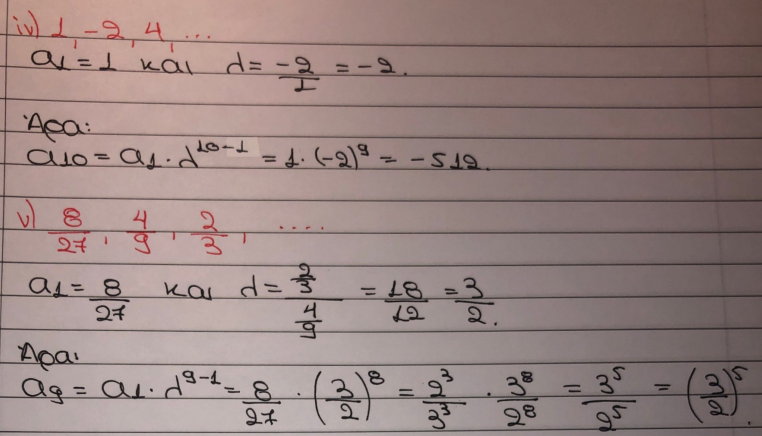 iv) 1, -2, 4, ...
α1 = 1 και λ = -2/1 = -2.
Άρα:
α10 = α1 · λ^10-1 = 1 · (-2)^9 = -512.
v) 8/27, 4/9, 2/3, ....
α1 = 8/27 και λ = (2/3)/(4/9) = 18/12 = 3/2.
Άρα:
α9 = α1 · λ^9-1 = 8/27 · (3/2)^8 = 2^3/3^3 · 3^8/2^8 = 3^5/2^5 = (3/2)^5.